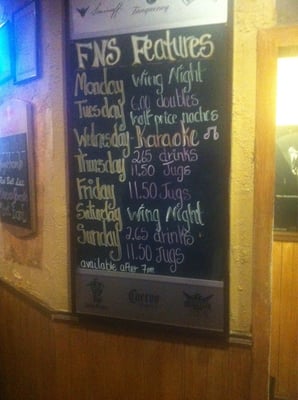 Smirnoff Tanqueray
FNS Features
Monday Wing Night
Tuesday 6.00 doubles
half price nachos
Wednesday Karaoke
Thursday 2.65 drinks
11.50 Jugs
Friday 11.50 Jugs
Saturday Wing Night
Sunday 2.65 drinks
11.50 Jugs
available after 7pm
Cuervo